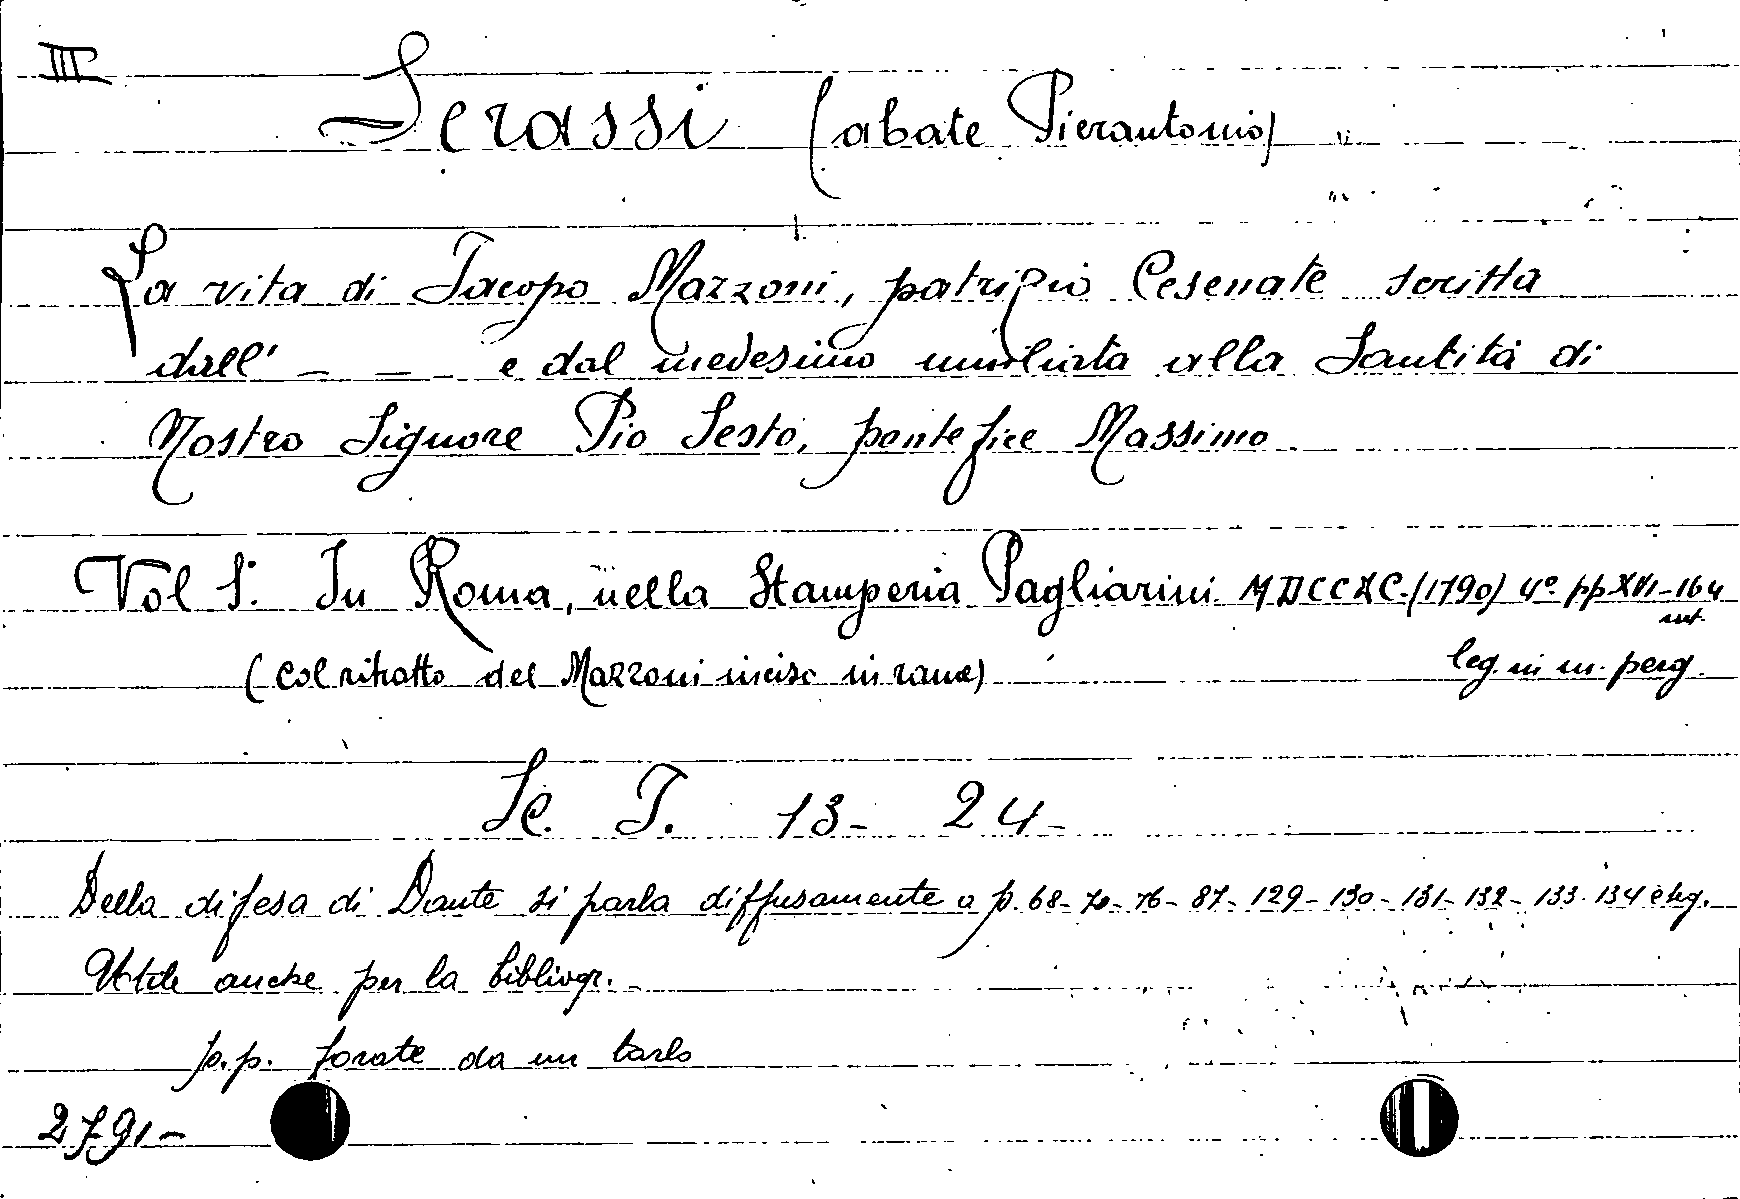 III
Serassi (abate Pierantonio)
La vita di Jacopo Mazzoni, patrizio Cesenate scritta
dall' - - - e dal medesimo umiliata alla Santità di
Nostro Signore Pio Sesto, pontefice Massimo
Vol 1°. In Roma, nella Stamperia Pagliarini MDCCXC.(1790) 4° pp XVI-164
(col ritratto del Mazzoni inciso in rame) leg. in m. perg.
Sc. T. 13- 24-
Della difesa di Dante si parla diffusamente a p. 68- 70- 76- 87- 129- 130- 131- 132- 133- 134 e seg.
Utile anche per la bibliogr.
p.p. forate da un tarlo
2791-